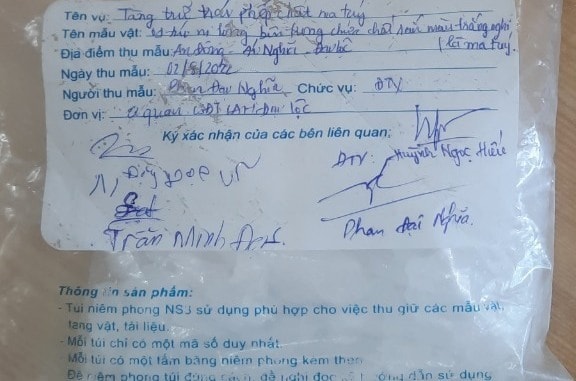 Tên vụ: Tàng trữ trái phép chất ma túy
Tên mẫu vật: 01 túi ni lông bên trong chứa chất rắn màu trắng nghi
là ma túy.
Địa điểm thu mẫu: An Đông - Đại Nghĩa - Đại Lộc
Ngày thu mẫu: 02/8/2022
Người thu mẫu: Phan Đại Nghĩa Chức vụ: ĐTV
Đơn vị: Cơ quan CSĐT CAH Đại Lộc
Ký xác nhận của các bên liên quan;
ĐTV: Huỳnh Ngọc Hiếu
Trần Minh
Phan Đại Nghĩa.
Thông tin sản phẩm:
- Túi niêm phong NS3 sử dụng phù hợp cho việc thu giữ các mẫu vật,
tang vật, tài liệu.
- Mỗi túi chỉ có một mã số duy nhất.
- Mỗi túi có một tấm băng niêm phong kèm theo
Để niêm phong túi đúng cách, đề nghị đọc kỹ hướng dẫn sử dụng